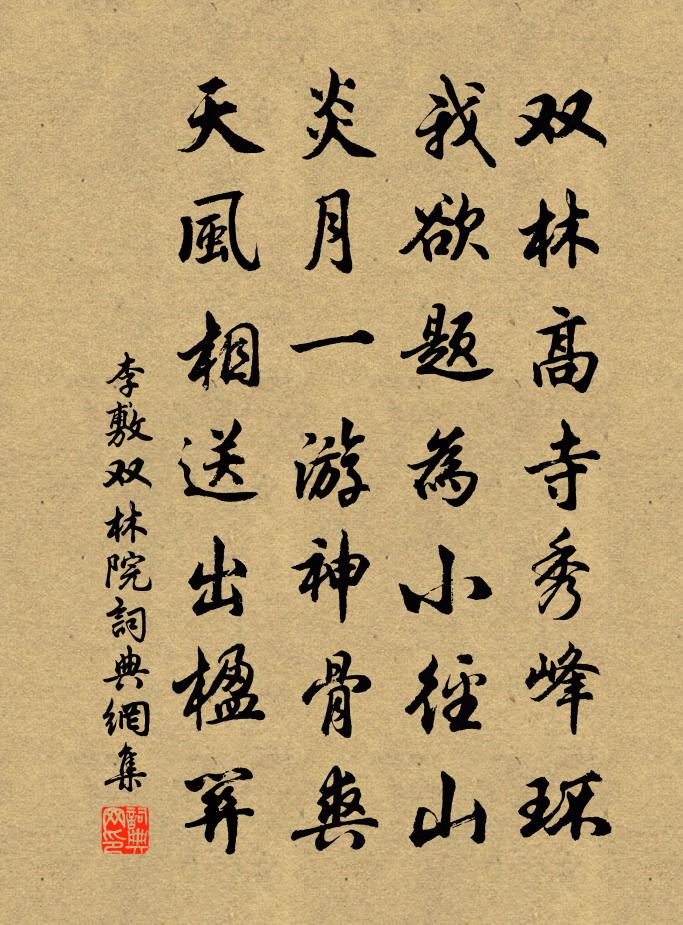 双林高寺秀峰环
我欲题為小徑山
炎月一游神骨爽
天風相送出楹關
李敷双林院詞典網集
詞典网印